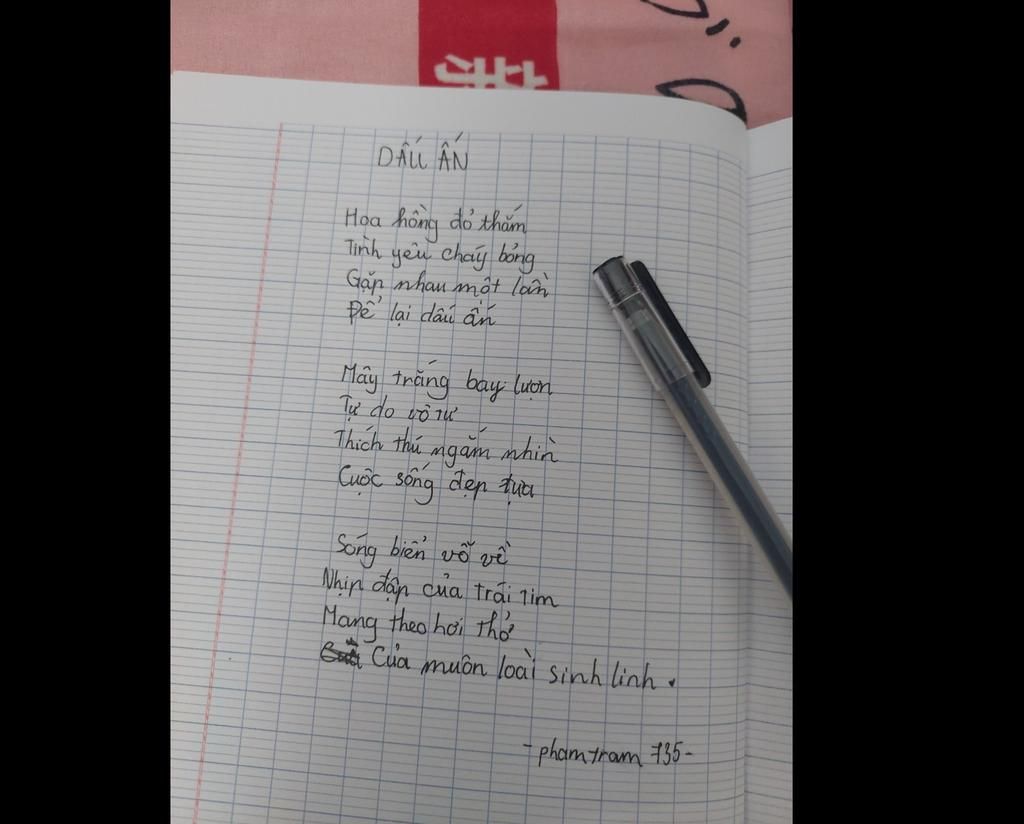 DẤU ẤN
Hoa hồng đỏ thắm
Tình yêu cháy bỏng
Gặp nhau một lần
Để lại dấu ấn
Mây trắng bay lượn
Tự do vô tư
Thích thú ngắm nhìn
Cuộc sống đẹp tựa
Sóng biển vỗ về
Nhịp đập của trái tim
Mang theo hơi thở
Của muôn loài sinh linh.
-phamtram 735-